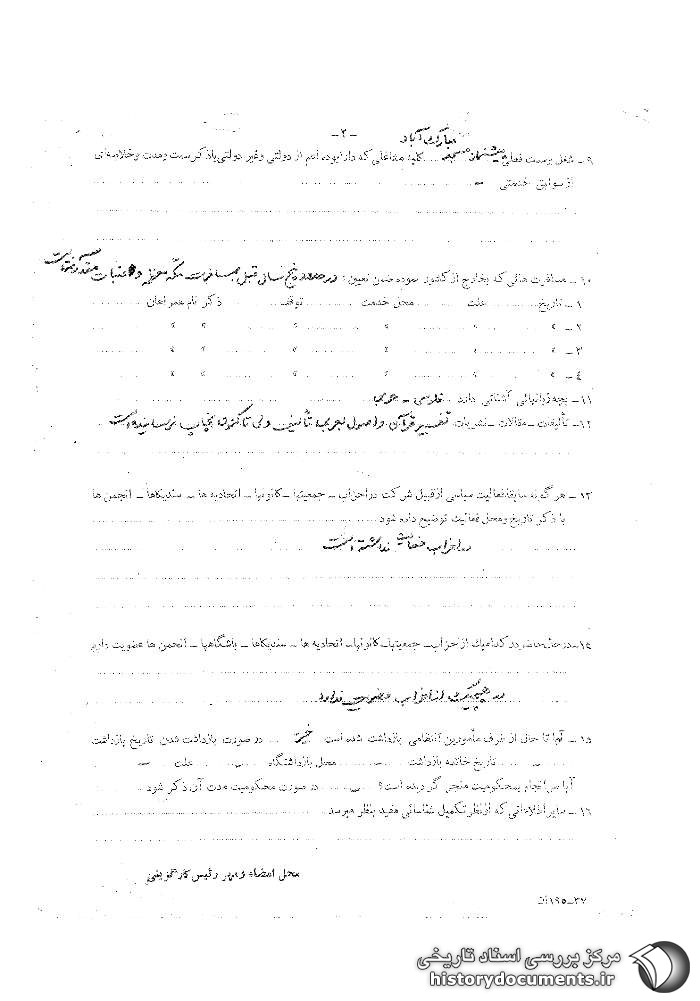 -۲-
مبارک آباد
۹ - شغل وسمت فعلی پیشنماز مسجد .... کلیه مشاغلی که دارا بوده اعم از دولتی وغیر دولتی باذکر سمت ومدت وخلاصه‌ای
از سوابق خدمتی
۱۰ - مسافرت هائی که بخارج از کشور نموده ضمن تعیین : در حدود پنج سال قبل بمسافرت مکه معظمه و عتبات
۱ - تاریخ ............ علت ............ محل خدمت ............ توقف ............ ذکر نام همراهان ............
۲ - » » » » » »
۳ - » » » » » »
۴ - » » » » » »
۱۱ - بچه زبانهائی آشنائی دارد .. فارسی - عربی
۱۲ - تألیفات - مقالات - نشریات. تفسیر قرآن و اصول بعربی تألیف ولی تاکنون بچاپ نرسانیده است
۱۳ - هر گونه سابقه فعالیت سیاسی از قبیل شرکت در احزاب - جمعیتها - کانونها - اتحادیه ها - سندیکاها - انجمن ها
با ذکر تاریخ ومحل فعالیت توضیح داده شود
در احزاب فعالیت نداشته است
۱۴ - در حال حاضر در کدامیك از احزاب - جمعیتها - کانونها - اتحادیه ها - سندیکاها - باشگاهها - انجمن ها عضویت دارد
در هیچیک از احزاب عضویت ندارد
۱۵ - آیا تا حال از طرف مأمورین انتظامی بازداشت شده است خیر .... در صورت بازداشت شدن تاریخ بازداشت
............ تاریخ خاتمه بازداشت ............ محل بازداشتگاه ............ علت -
آیا سرانجام بمحکومیت منجر گردیده است؟ ............ در صورت محکومیت مدت آن ذکر شود
۱۶ - سایر اطلاعاتی که از نظر تکمیل شناسائی مفید بنظر میرسد
محل امضاء ومهر رئیس کارگزینی
مرکز بررسی اسناد تاریخی
historydocuments.ir